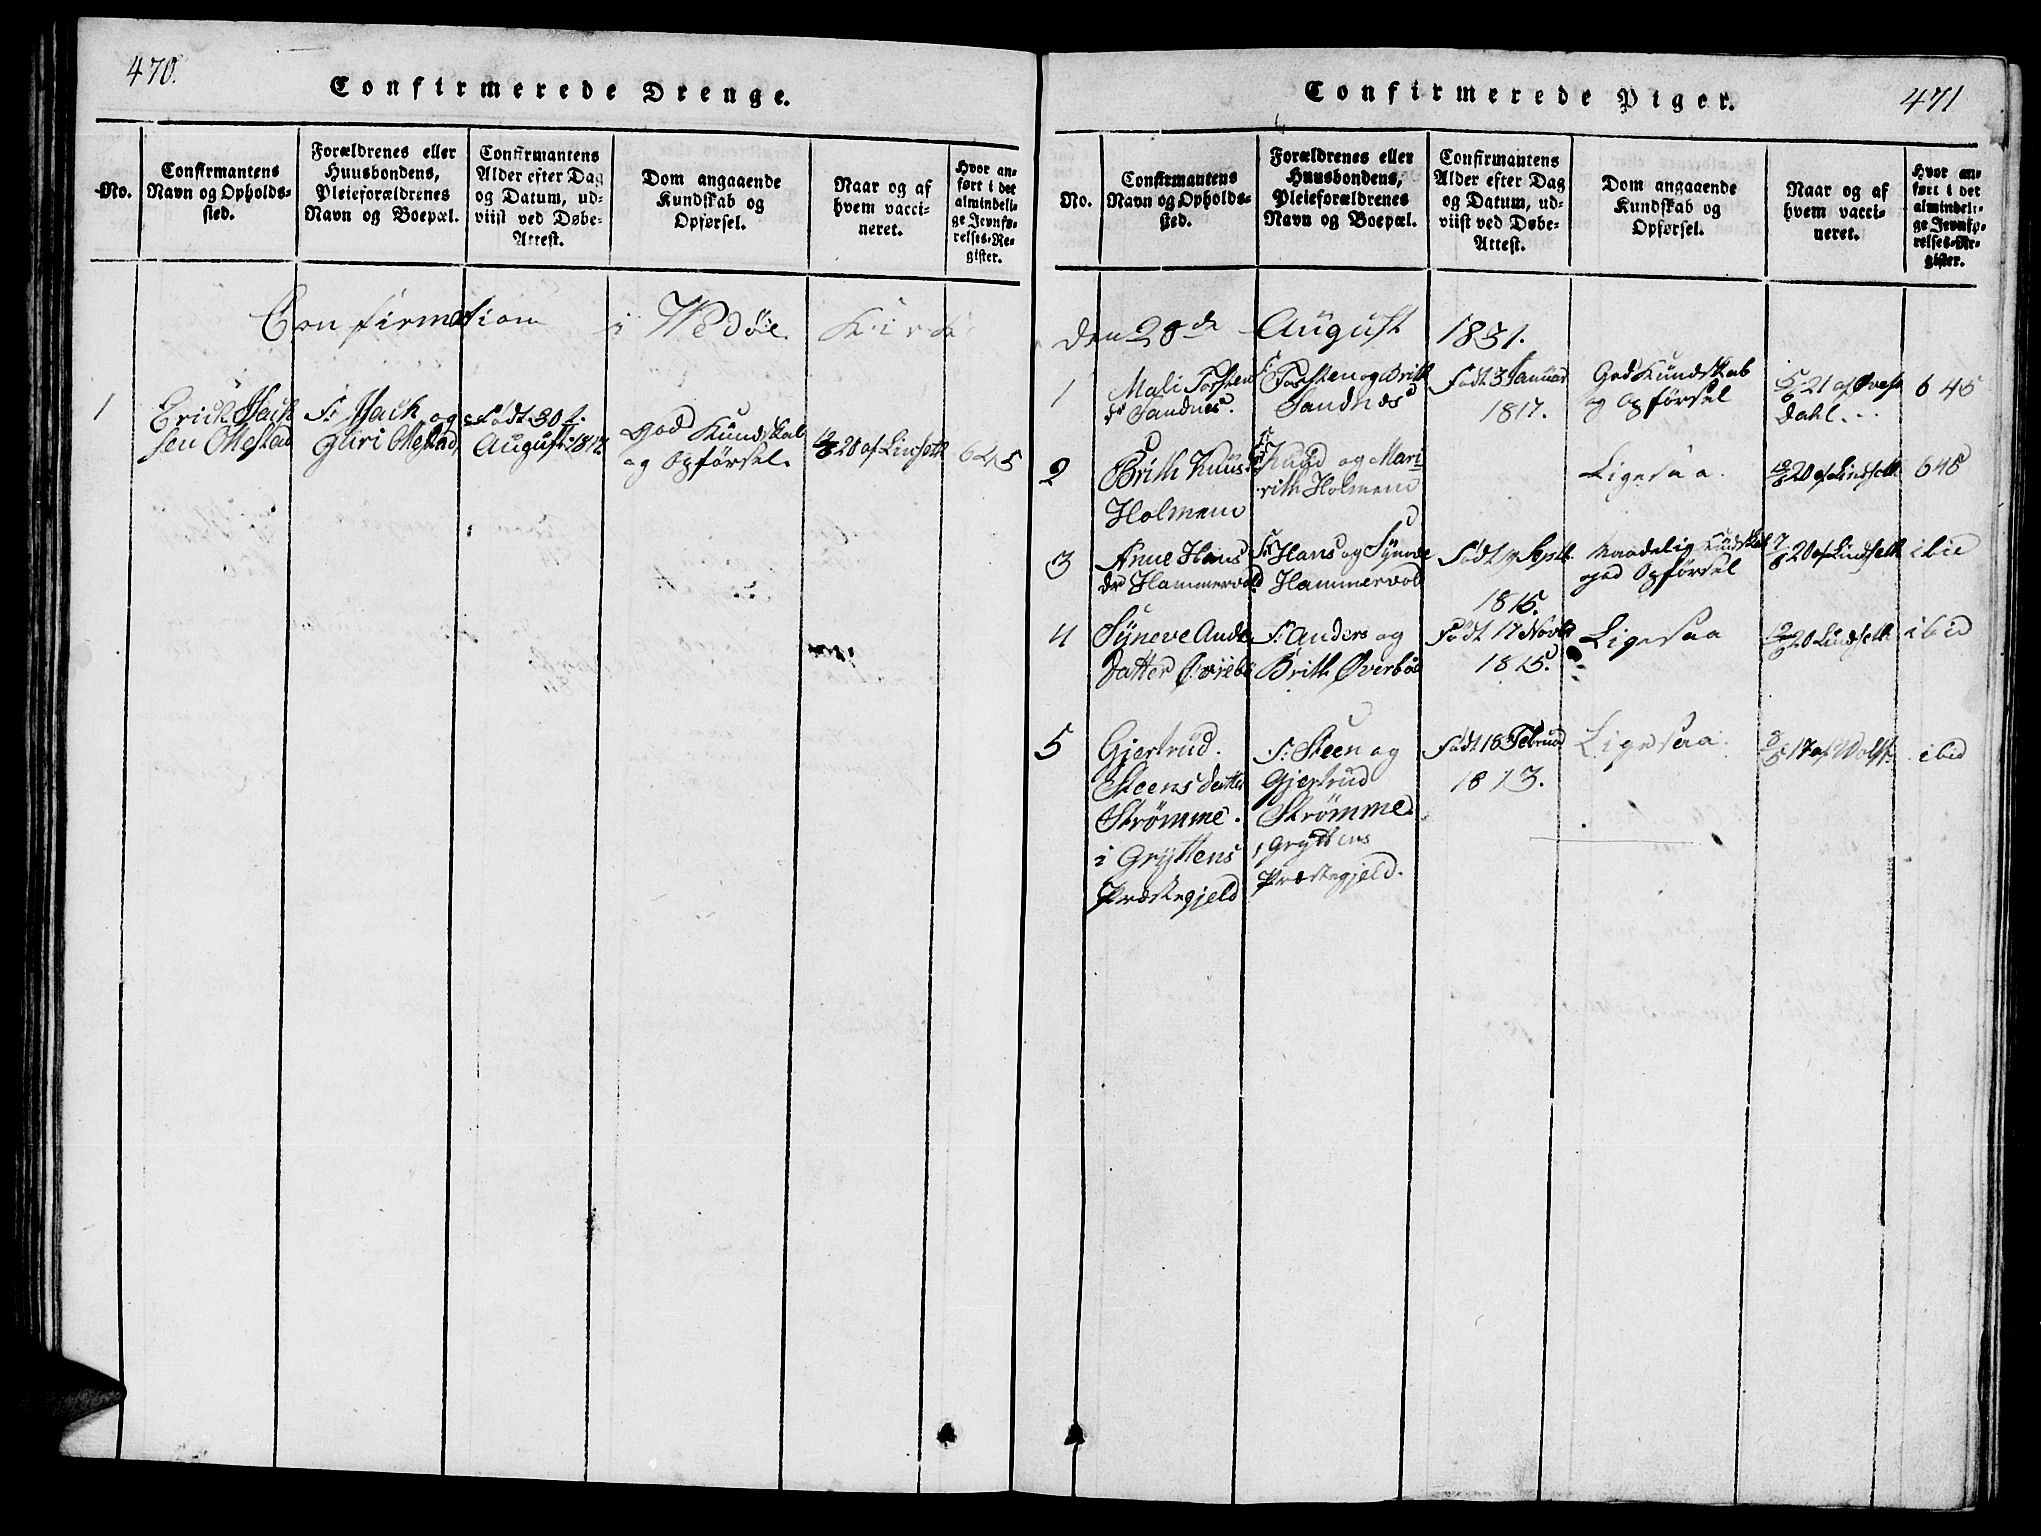 470.
Confirmerede Drenge.
No.
Confirmantens
Navn og Opholds-
sted.
Forældrenes eller
Huusbondens,
Pleieforældrenes
Navn og Boepæl.
Confirmantens
Alder efter Dag
og Datum, ud-
viist ved Døbe-
Attest.
Dom angaaende
Kundskab og
Opførsel.
Naar og af
hvem vacci-
neret.
Hvor an-
ført i det
almindeli-
ge Jevnfø-
relses-Re-
gister.
Confirmation i Wedøe Kirke
1
Erich
sen Mestad
F:
og
Guri Mestad
Født 30 t.
August
God Kundskab
og Opførsel.
20 af Linseth
645
Confirmerede Piger.
471
No.
Confirmantens
Navn og Opholds-
sted.
Forældrenes eller
Huusbondens,
Pleieforældrenes
Navn og Boepæl.
Confirmantens
Alder efter Dag
og Datum, ud-
viist ved Døbe-
Attest.
Dom angaaende
Kundskab og
Opførsel.
Naar og af
hvem vacci-
neret.
Hvor an-
ført i det
almindeli-
ge Jevnfø-
relses-Re-
gister.
den 28de August 1831.
1
Mali Torsten
dr Sandnes.
F: Torsten og Brith
Sandnes
Født 3 Januar
1817.
God Kundskab
og Opførsel
21 af
Dahl.
645
2
Brith Knus
Holmem
F: Knud og Mari-
rith Holmem
Ligesaa.
20 af Lindseth
645
3
Anne Hans
dr Hammervold
F: Hans og Synove
Hammervold
Født Septb.
1815.
Maadelig Kundskab
god Opførsel
20 af Lindseth
ibid
4
Syneve Ande
Datter
F: Anders og
Brith Øverbøe
Født 17 Novb
1815.
Ligesaa
20 Lindseth
ibid
5
Gjertrud.
Steens datter
Strømme.
i Gryttens
Præstegjeld
F: Steen og
Gjertrud
Strømme.
i Gryttens
Præstegjeld.
Født 18 Februar
1813.
Ligesaa.
17 af
ibid